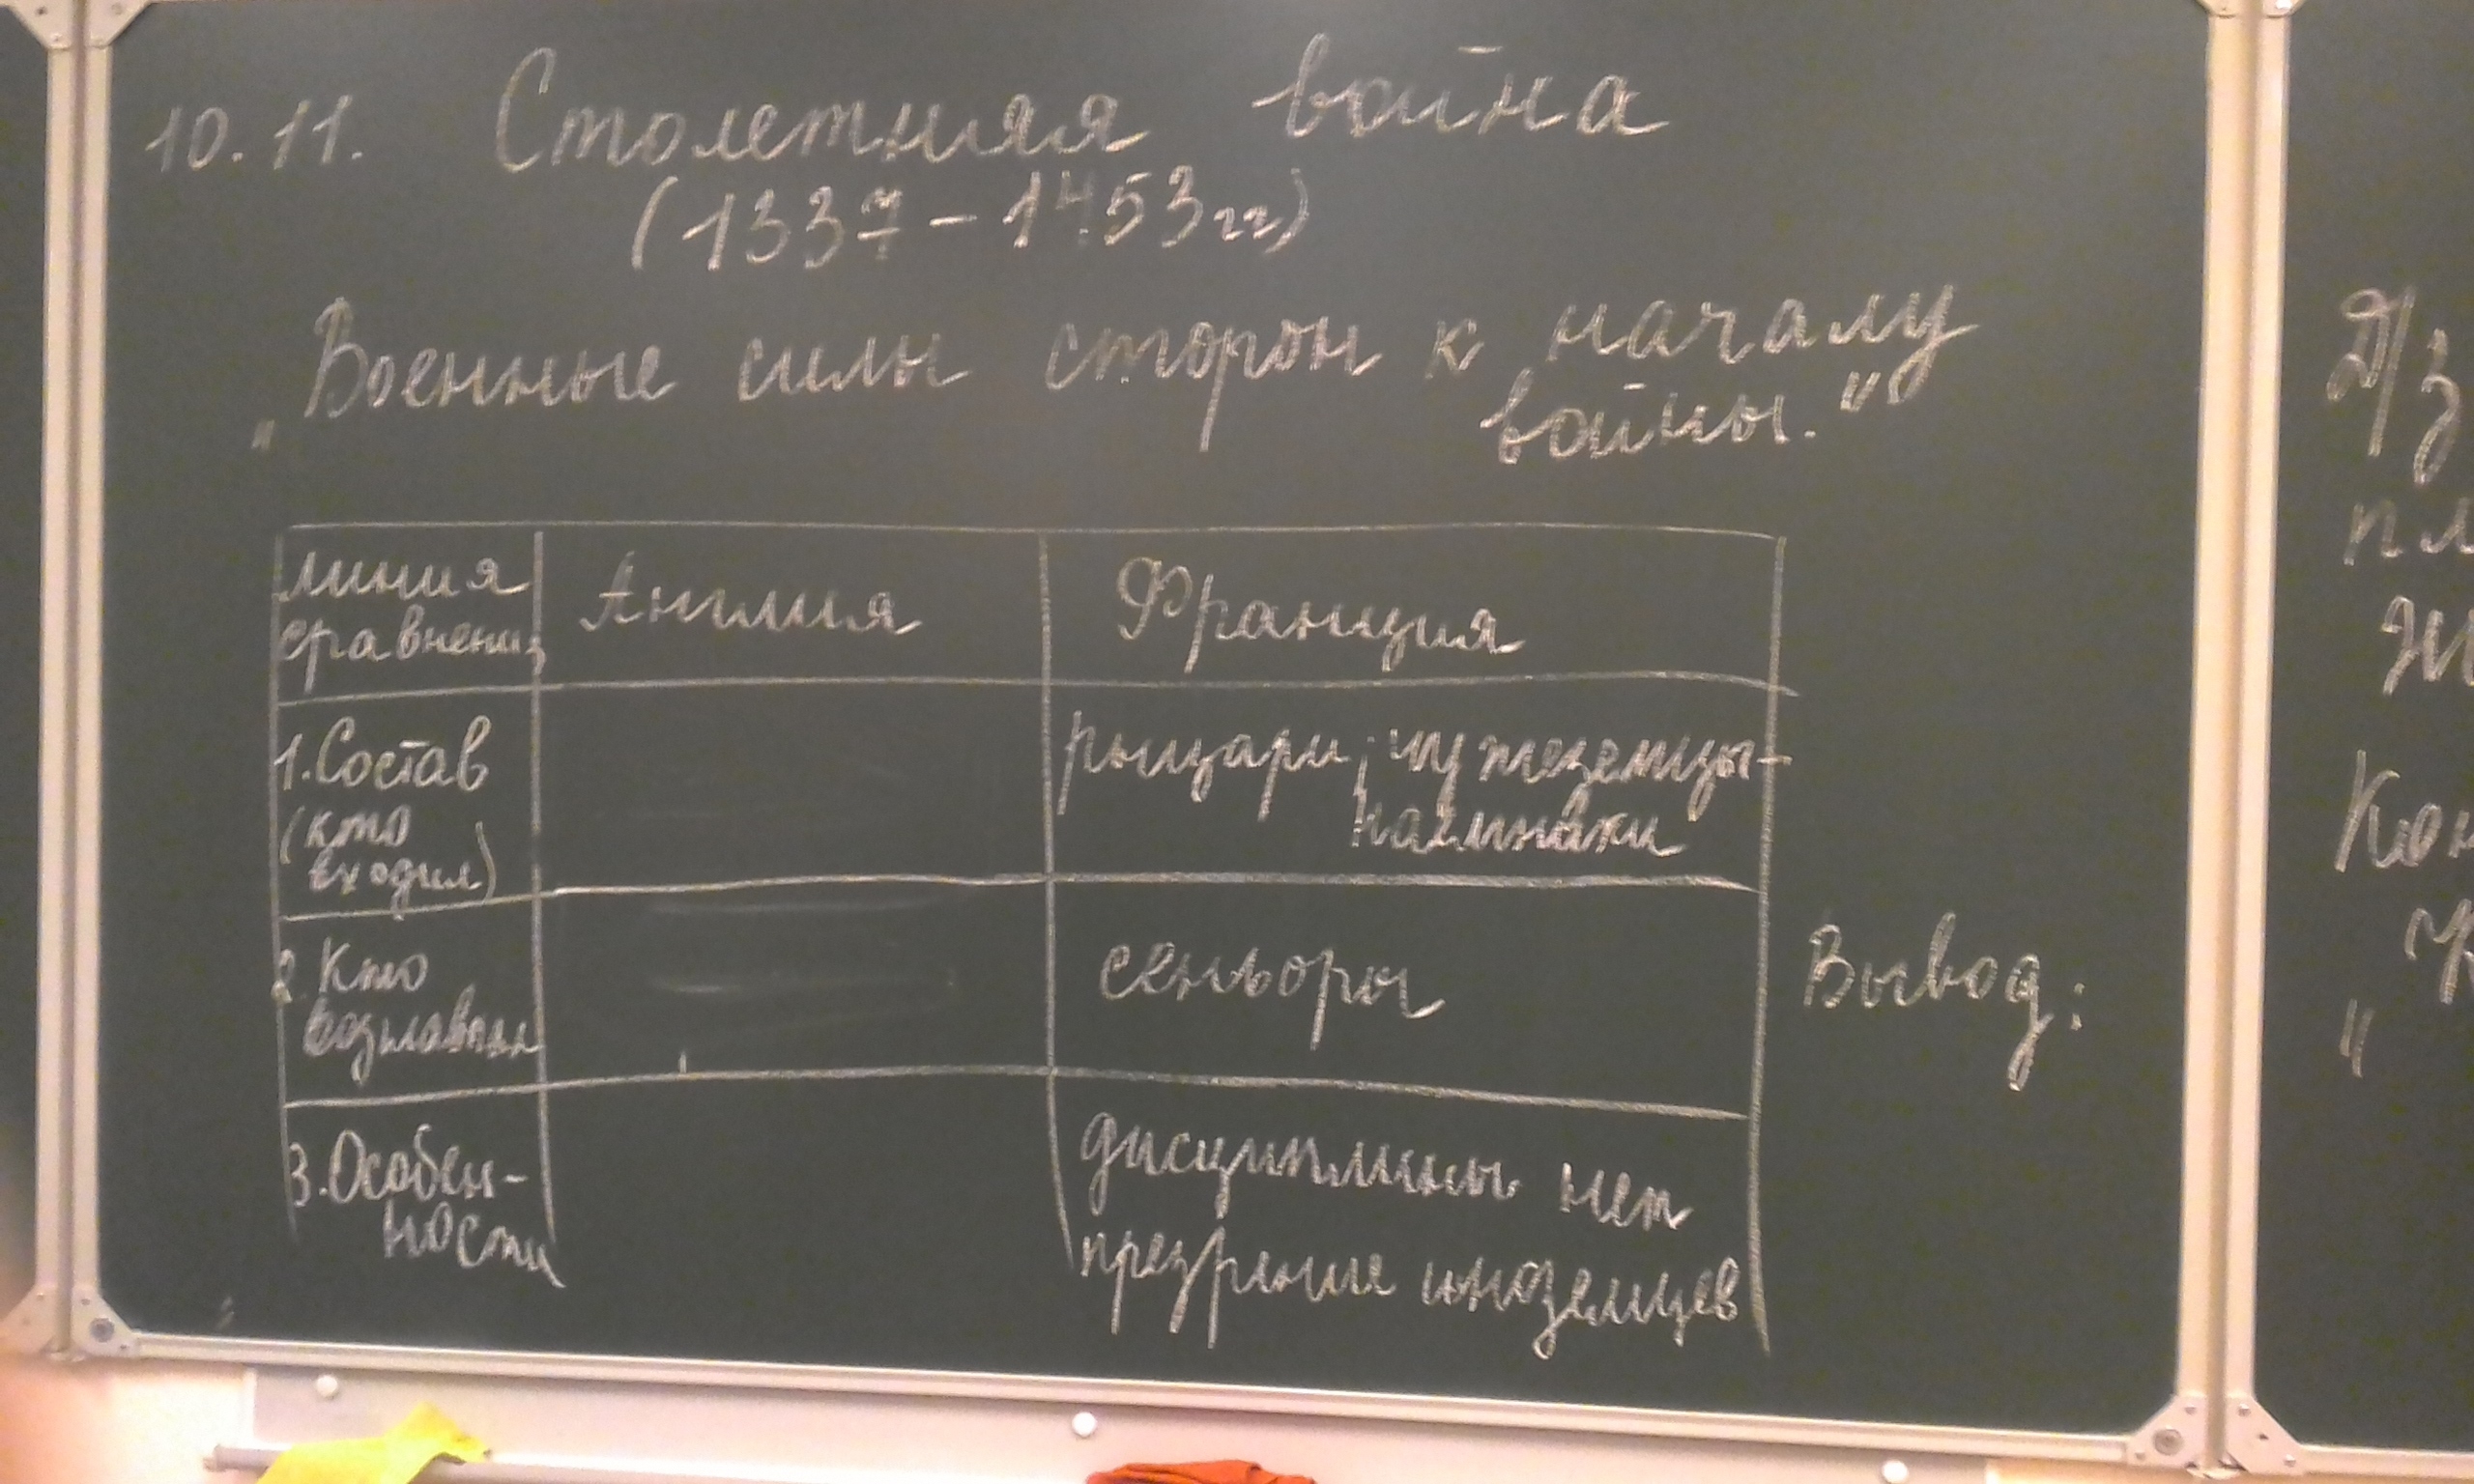 10.11. Столетняя война
(1337-1453гг)
„Военные силы сторон к началу
войны."
линия
сравнения
Англия
Франция
1.Состав
(кто
входил)
рыцари, чужеземцы-
наёмники
2. Кто
возглавлял
сеньоры
Вывод:
3.Особен-
ности
дисциплины нет
презрение иноземцев
Д/з